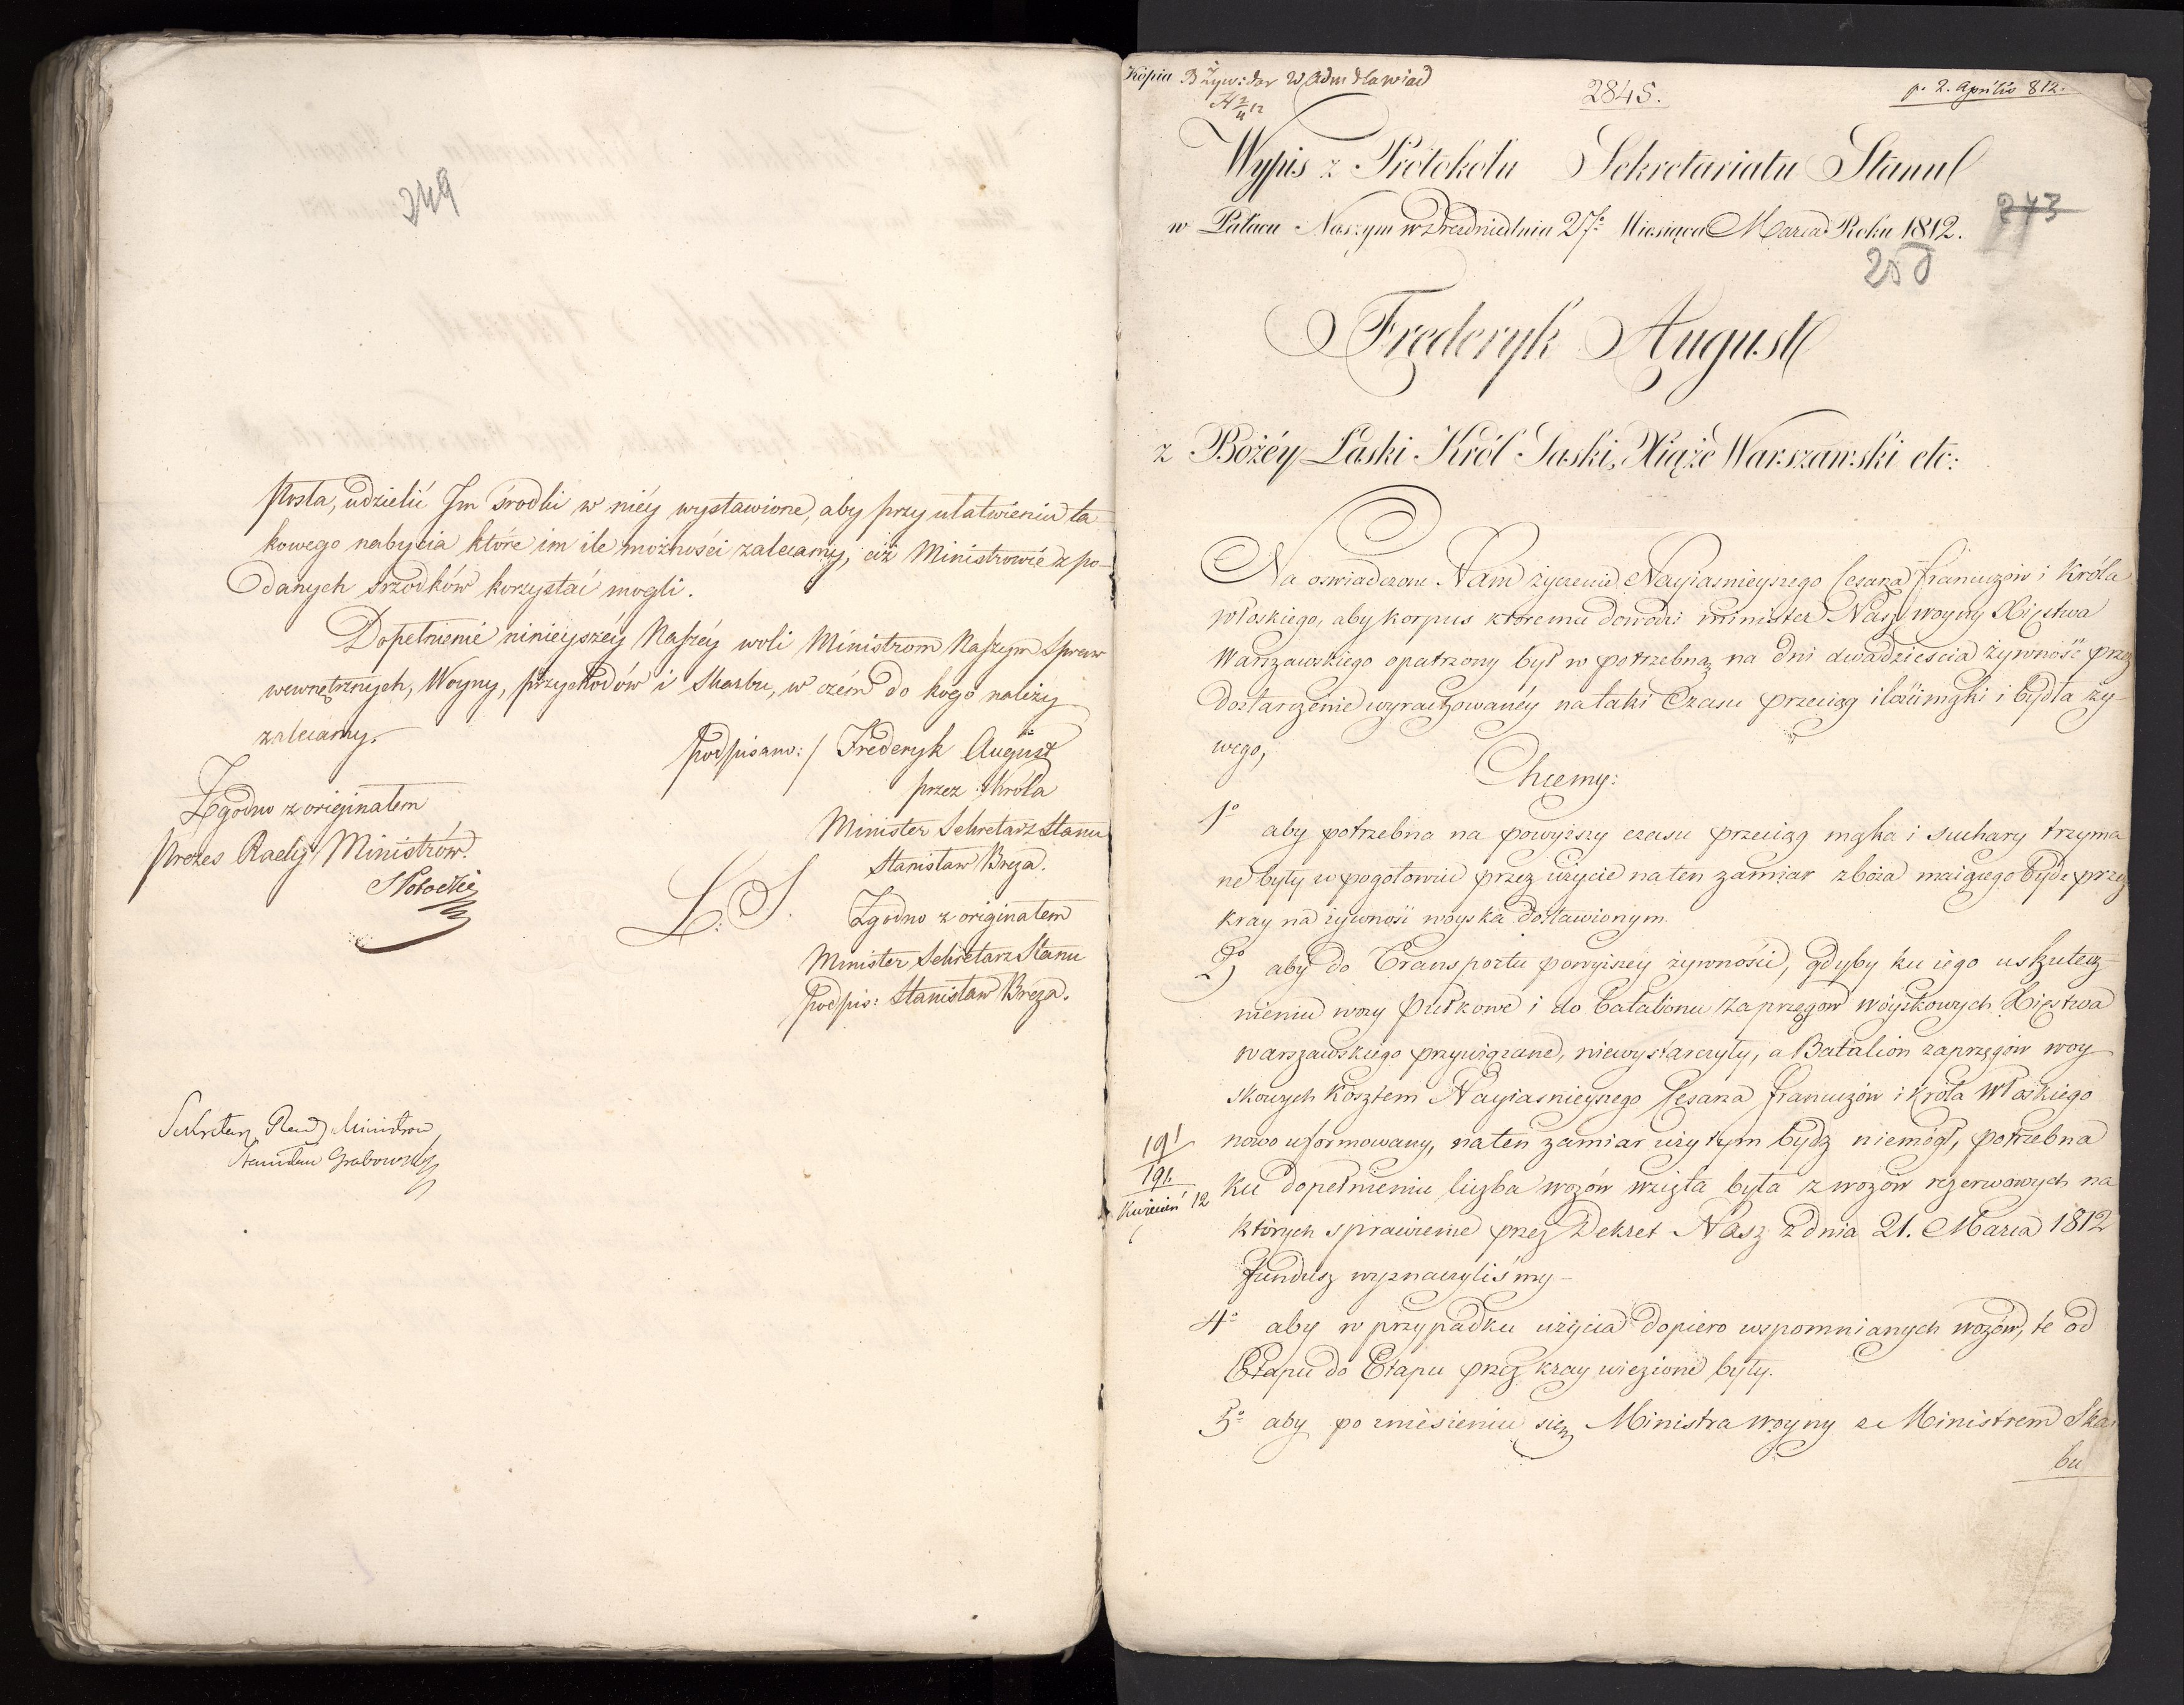 249
posła, udzielić Im środki w niéy wystawione, aby przy ułatwieniu ta-
kowego nabycia które im ile możności zalecamy, ciż Ministrowie z po-
danych srzodków korzystać mogli.
Dopełnienie ninieyszéy Naszéy woli Ministrom Naszym Spraw
wewnętrznych, Woyny, przychodów i Skarbu, w czém do kogo należy
zalecamy.
podpisano: / Frederyk August
przez Króla
Minister Sekretarz Stanu
Stanisław Breza.
Zgodno z originałem
Prezes Rady Ministrów.
S Potocki
L. S.
Zgodno z originałem
Minister Sekretarz Stanu
podpis: Stanisław Breza.
Sekretarz Rady Ministrów
Stanisław Grabowski
Kopia
2845.
p. 2. Aprilis 812.
Wypis z Protokołu Sekretariatu Stanu
w Pałacu Naszym w Dreźnie dnia 27º Miesiąca Marca Roku 1812.
243
250
Frederyk August
z Bożéy Łaski Król Saski, Xiąże Warszawski etc:
Na oswiadczone Nam życzenie Nayiasnieyszego Cesarza francuzów i Króla
włoskiego, aby korpus któremu dowodzi minister Nasz woyny Xięstwa
Warszawskiego opatrzony był w potrzebną na dni dwadziescia żywność przez
dostarczenie wyrachowanéy na taki Czasu przeciąg ilości mąki i bydła ży-
wego,
Chcemy:
1º aby potrzebna na powyższy czasu przeciąg mąka i suchary trzyma
ne były w pogotowiu przez użycie na ten zamiar zboża maiącego bydź przez
kray na żywność woyska dostawionym
2º aby do Transportu powyższey żywności, gdyby ku iego uskutecz-
nieniu wozy pułkowe i do batalionu zaprzęgów wóyskowych Xięstwa
warszawskiego przywiązane, niewystarczyły, a Batalion zaprzęgów woy
skowych kosztem Nayiasnieyszego Cesarza francuzów i Króla Włoskiego
nowo uformowany, na ten zamiar użytym bydz niemógł, potrzebna
191
191.
Kwiecień 12
ku dopełnieniu liczba wozów wzięta była z wozów rezerwowych na
których sprawienie przez Dekret Nasz z dnia 21. Marca 1812
fundusz wyznaczyliśmy-
4º aby w przypadku użycia dopiero wspomnianych wozów, te od
Etapu do Etapu przez kray wiezione były.
5º aby po zniesieniu się Ministra woyny ze Ministrem Skar
bu